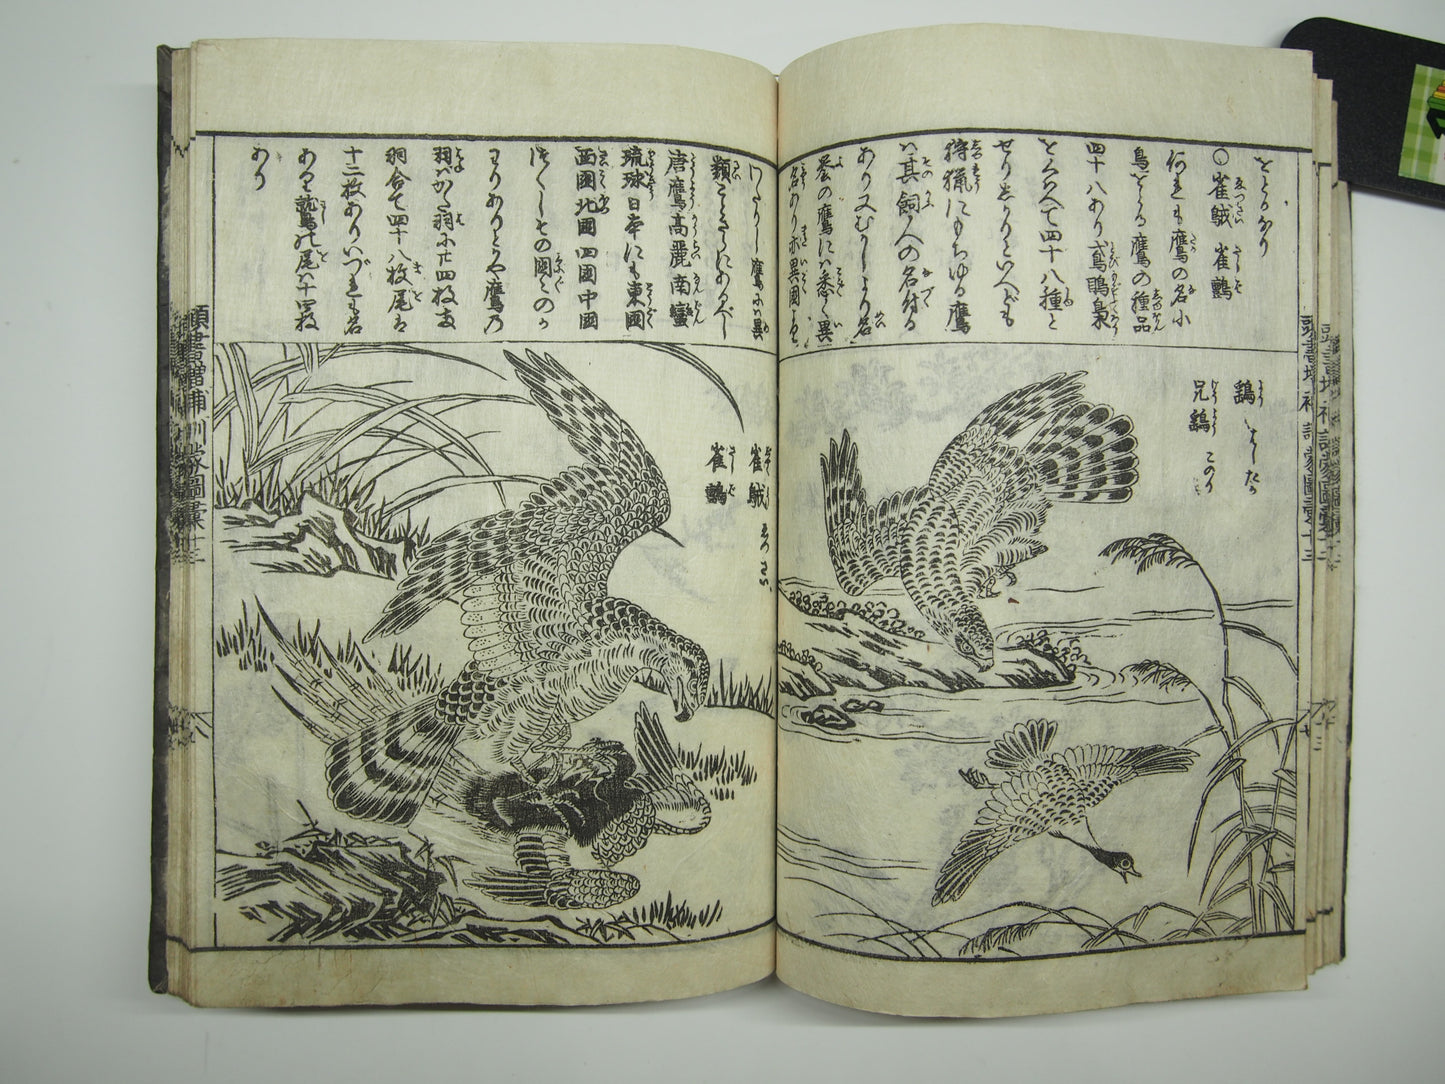 をとるなり
○雀𪀚 雀鷂
何れも鷹の名小
鳥をとる鷹の種品
四十八あり鳶鵰梟
とくらへて四十八種と
せりしかりといへども
狩猟にもちゆる鷹
ハ其飼人の名付る
あり又むかしより名
誉の鷹にハ悉く異
名あり亦異国にも
鷂 はしたか
兄鷂 このり
わたりし鷹にハ異
類ことさらにあるべし
唐鷹高麗南蠻
琉球日本にも東國
西國北國四國中國
つくし其の國々のか
わりありとぞ鷹乃
羽ハかた羽に廿四枚宛
羽合て四十八枚尾は
十二枚ありいづれも名
あり鷲の尾ハ十四枚
あり
雀𪀚 ゑつさい
雀鷂
頭書増補訓蒙圖彙十三
頭書増補訓蒙圖彙十三